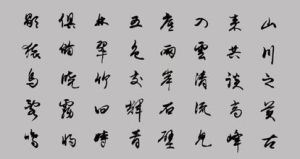 山川之美古
來共談高峰
入雲清流見
底兩岸石壁
五色交輝青
林翠竹四時
俱備曉霧將
歇猿鳥亂鳴